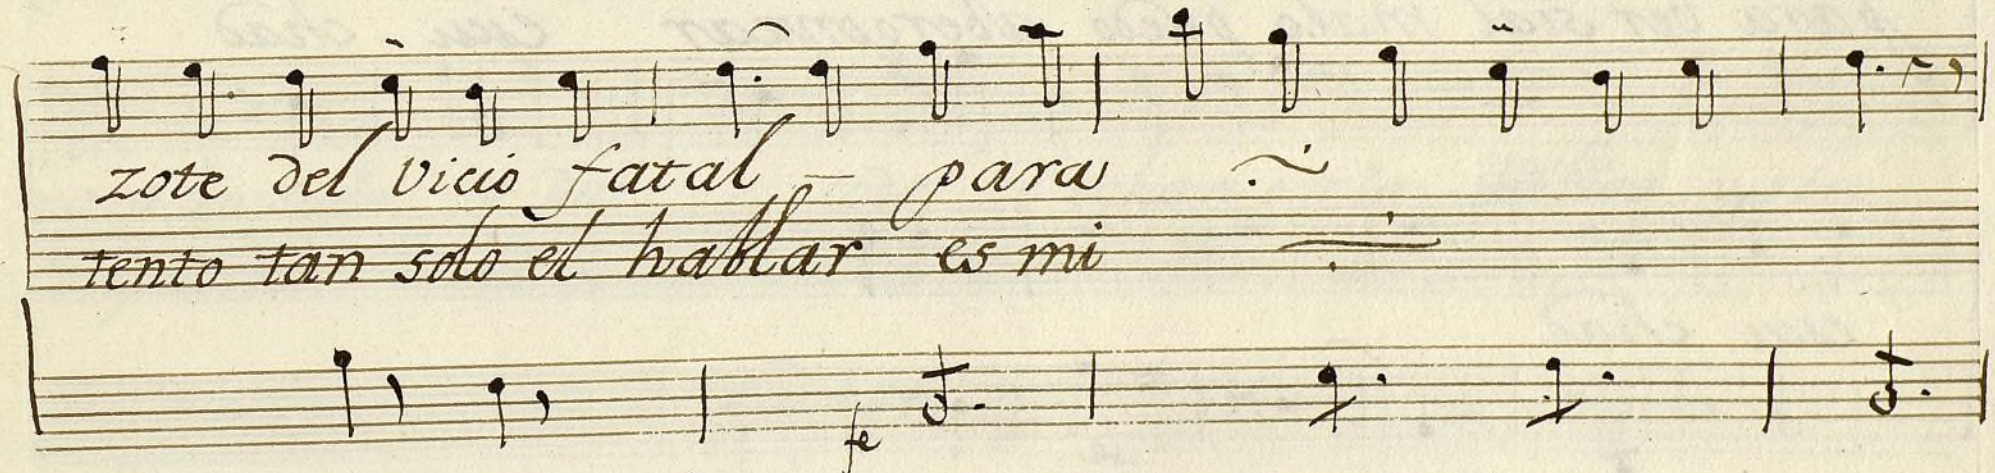 zote del vicio fatal – para
tento tan solo el hablar es mi
fe